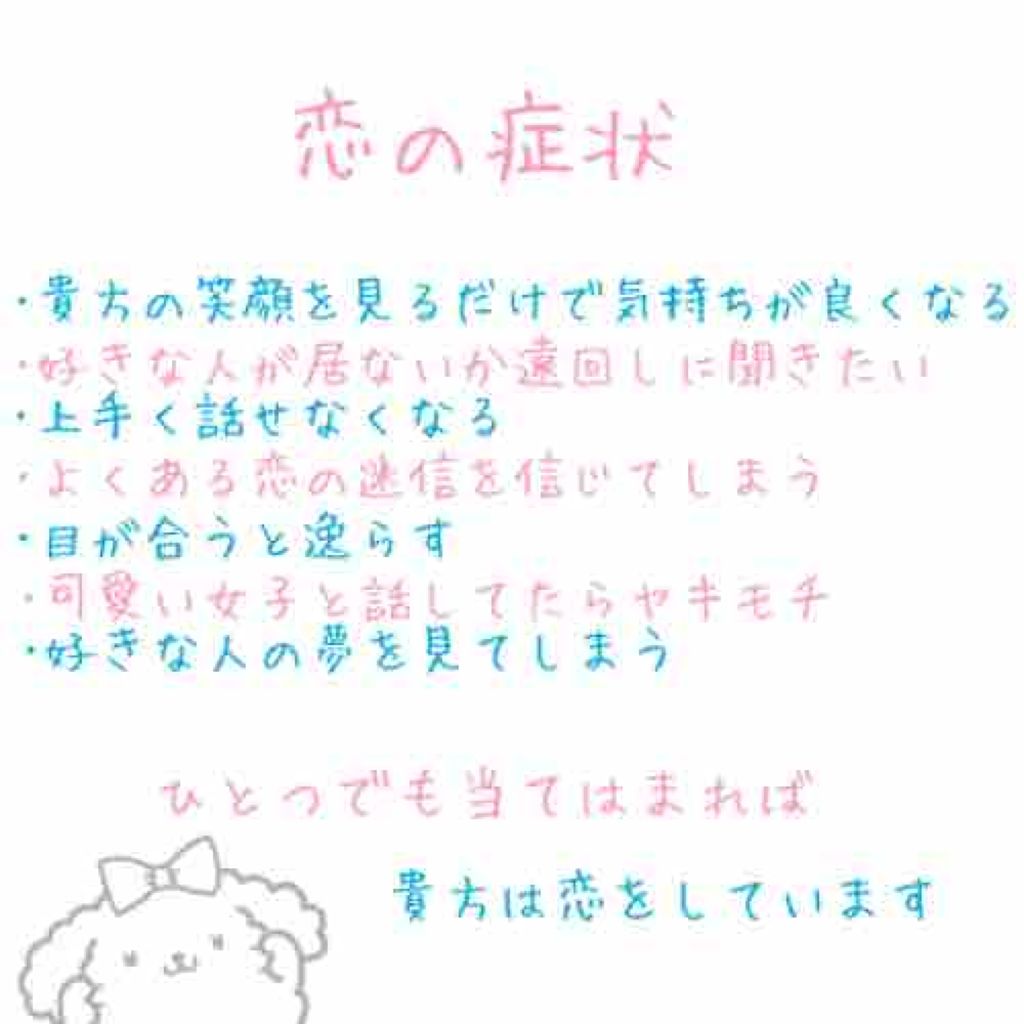 恋の症状
・貴方の笑顔を見るだけで気持ちが良くなる
・好きな人が居ないか遠回しに聞きたい
・上手く話せなくなる
・よくある恋の迷信を信じてしまう
・目が合うと逸らす
・可愛い女子と話してたらヤキモチ
・好きな人の夢を見てしまう
ひとつでも当てはまれば
貴方は恋をしています